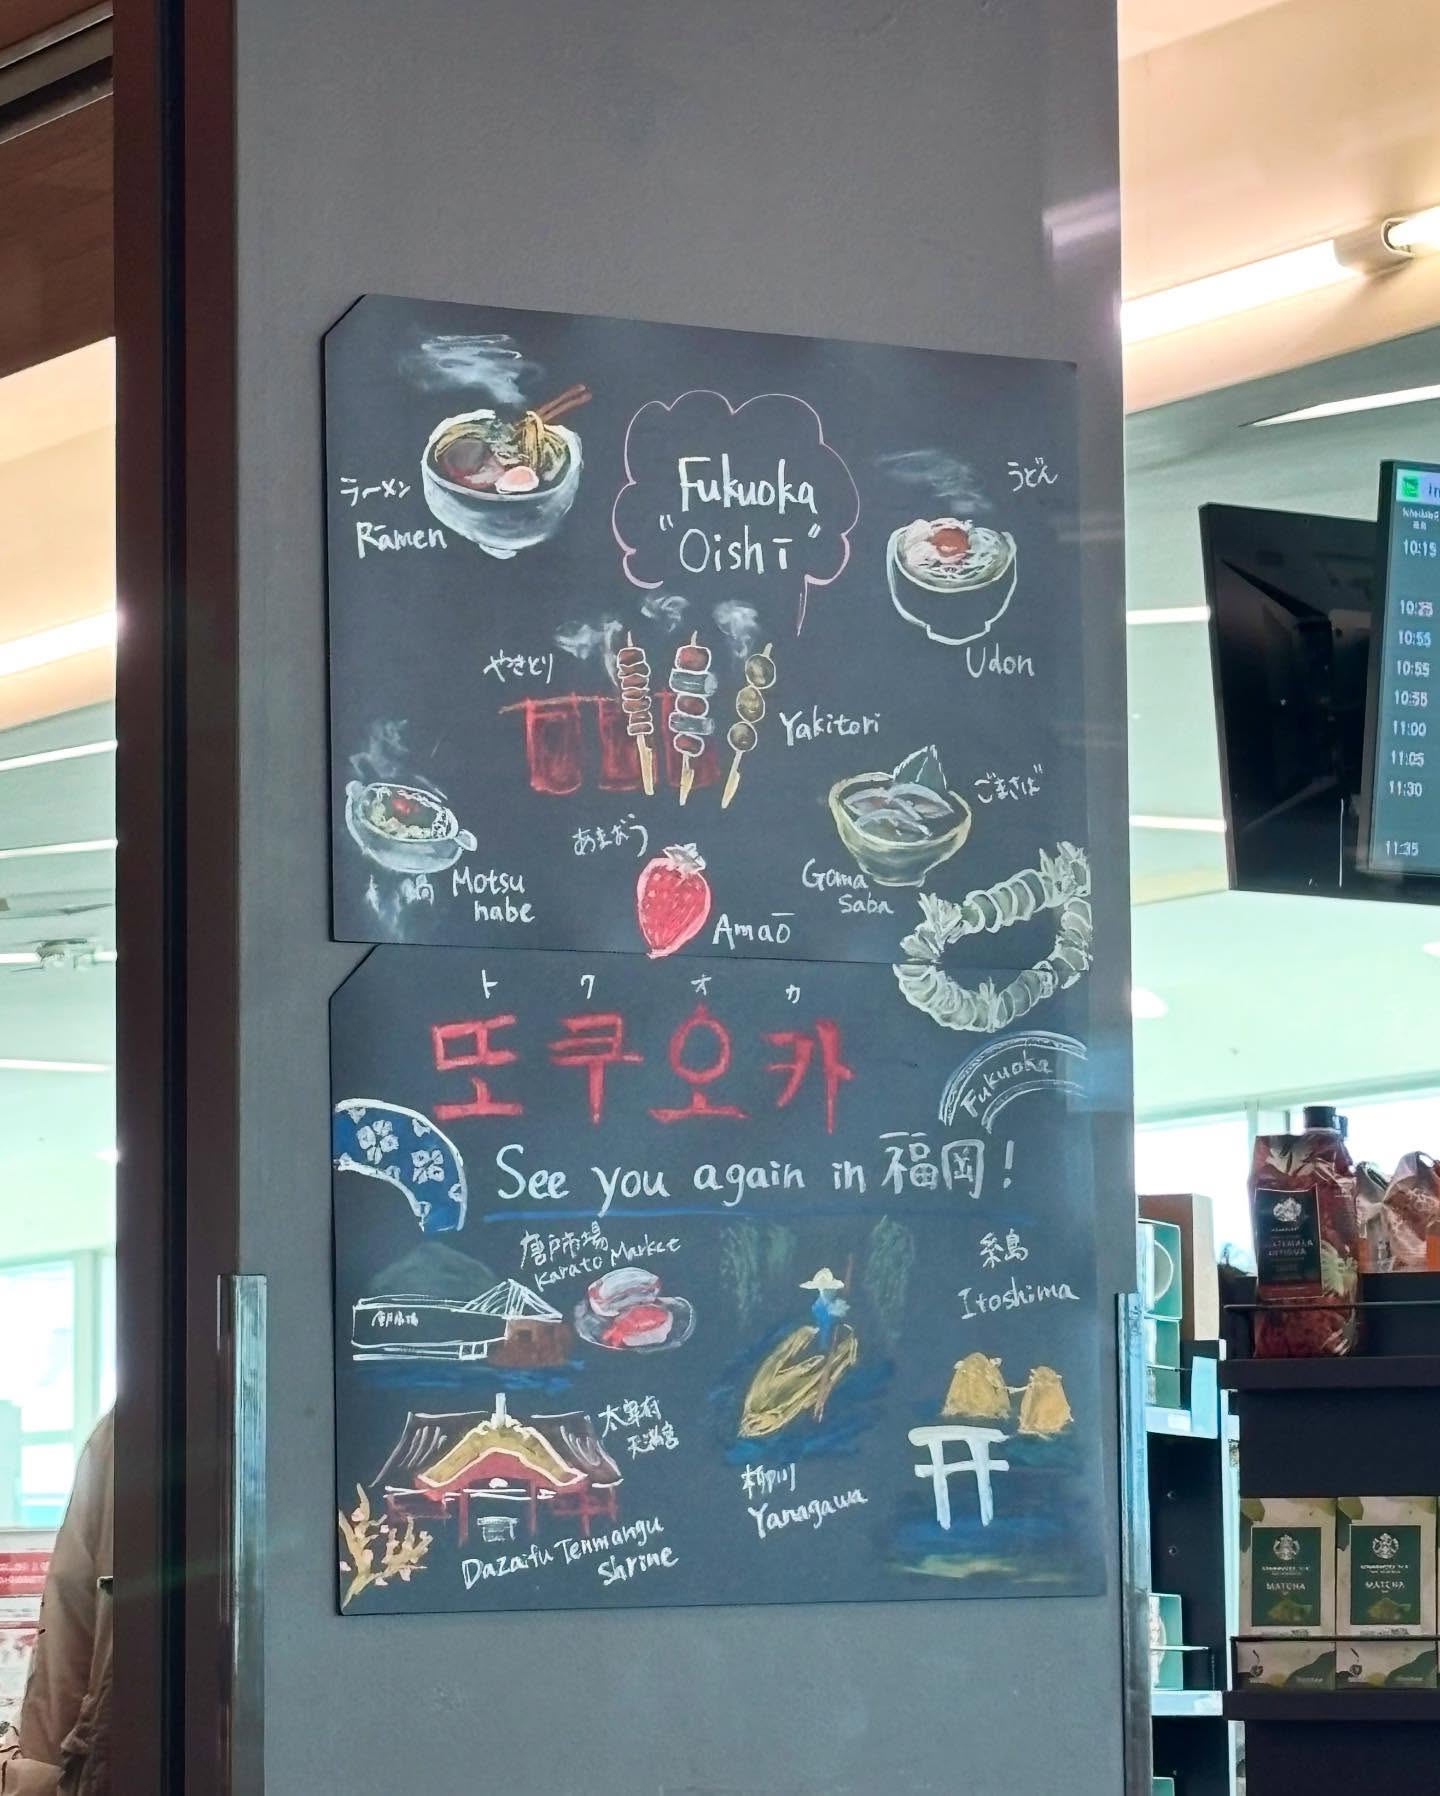 Fukuoka
"Oishī"
ラーメン
Rāmen
うどん
Udon
やきとり
Yakitori
ごまさば
Goma
Saba
あまおう
Amaō
鍋
Motsu
nabe
トクオカ
또쿠오카
Fukuoka
See you again in 福岡!
唐戸市場
Karato Market
糸島
Itoshima
太宰府
天満宮
Dazaifu Tenmangu
Shrine
柳川
Yanagawa
10:15
10:55
10:55
11:00
11:05
11:30
11:35
MATCHA
MATCHA